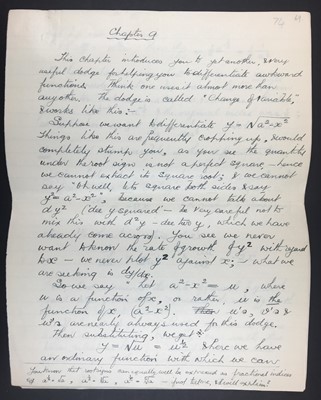 74 69
Chapter 9
This chapter introduces you to yet another, & very
useful dodge for helping you to differentiate awkward
functions. I think one uses it almost more than
any other. The dodge is called "Change of Variable,"
& works like this:—
Suppose we want to differentiate y = √a²-x²
Things like this are frequently cropping up, & would
completely stump you, as you see the quantity
under the root sign is not a perfect square, — hence
we cannot extract its square root; & we cannot
say "Oh well, let's square both sides & say
y² = a²-x²", because we cannot talk about
dy² (de y squared — be very careful not to
mix this with d²y - de two y, which we have
already come across). You see we never
want to know the rate of growth of y² with regard
to x — we never plot y² against x; — what we
are seeking is dy/dx.
So we say "let a²-x² = u, where
u is a function of x, or rather, u is the
function of x, (a²-x²). u's, v's &
w's are nearly always used for this dodge.
Then substituting, we get
y = √u = u½ & here we have
an ordinary function with which we can
You know that roots can equally well be expressed as fractional indices